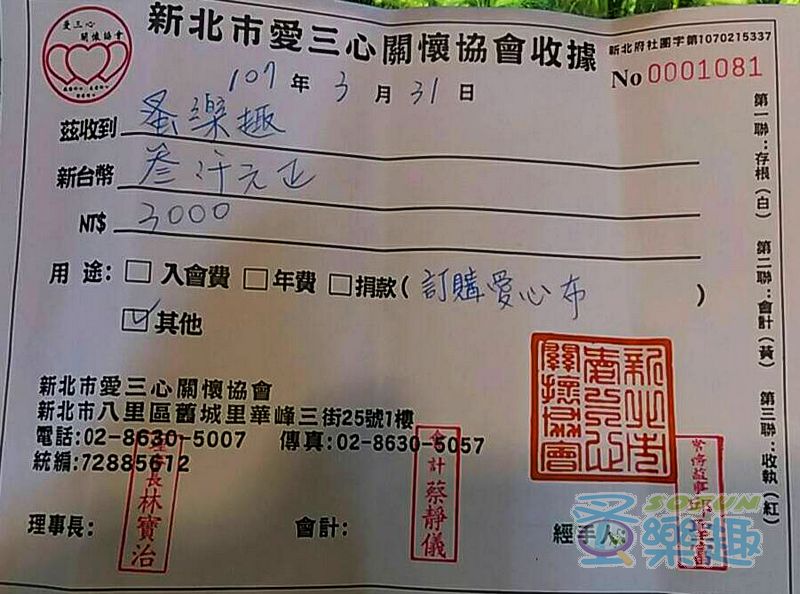 愛三心
關懷協會
新北市愛三心關懷協會收據
新北府社團字第1070215337
No 0001081
107年 3月 31日
茲收到 蚤樂趣
新台幣 叁仟元正
NT$ 3000
用 途: □ 入會費 □ 年費 □ 捐款( 訂購愛心布 )
☑ 其他
新北市愛三心關懷協會
新北市八里區舊城里華峰三街25號1樓
電話:02-8630-5007 傳真:02-8630-5057
統編:72885612
理事長: 理事長林寶治 會計: 會計蔡靜儀 經手人:
第一聯:存根(白) 第二聯:會計(黃) 第三聯:收執(紅)
新北市愛三心關懷協會
SOJUN
蚤樂趣